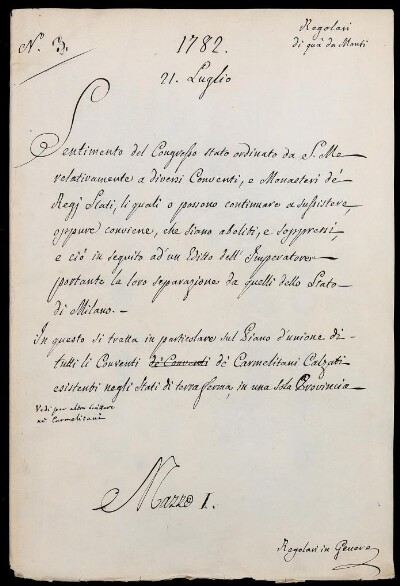 N.° 3.
1782.
Regolari
di quà da Monti
21. Luglio
Sentimento del Congresso stato ordinato da S. M.
relativamente a diversi Conventi, e Monasteri de'
Regj Stati, li quali o possono continuare a sussistere,
oppure conviene, che siano aboliti, e soppressi,
e ciò in seguito ad'un Editto dell'Imperatore
portante la loro separazione da quelli dello Stato
di Milano.
In questo si tratta in particolare sul Piano d'unione di
tutti li Conventi de' Conventi de' Carmelitani Calzati
esistenti negli Stati di terra ferma, in una sola Provincia
Vedi per altre scritture
ne' Carmelitani
Mazzo I.
Regolari in Genere